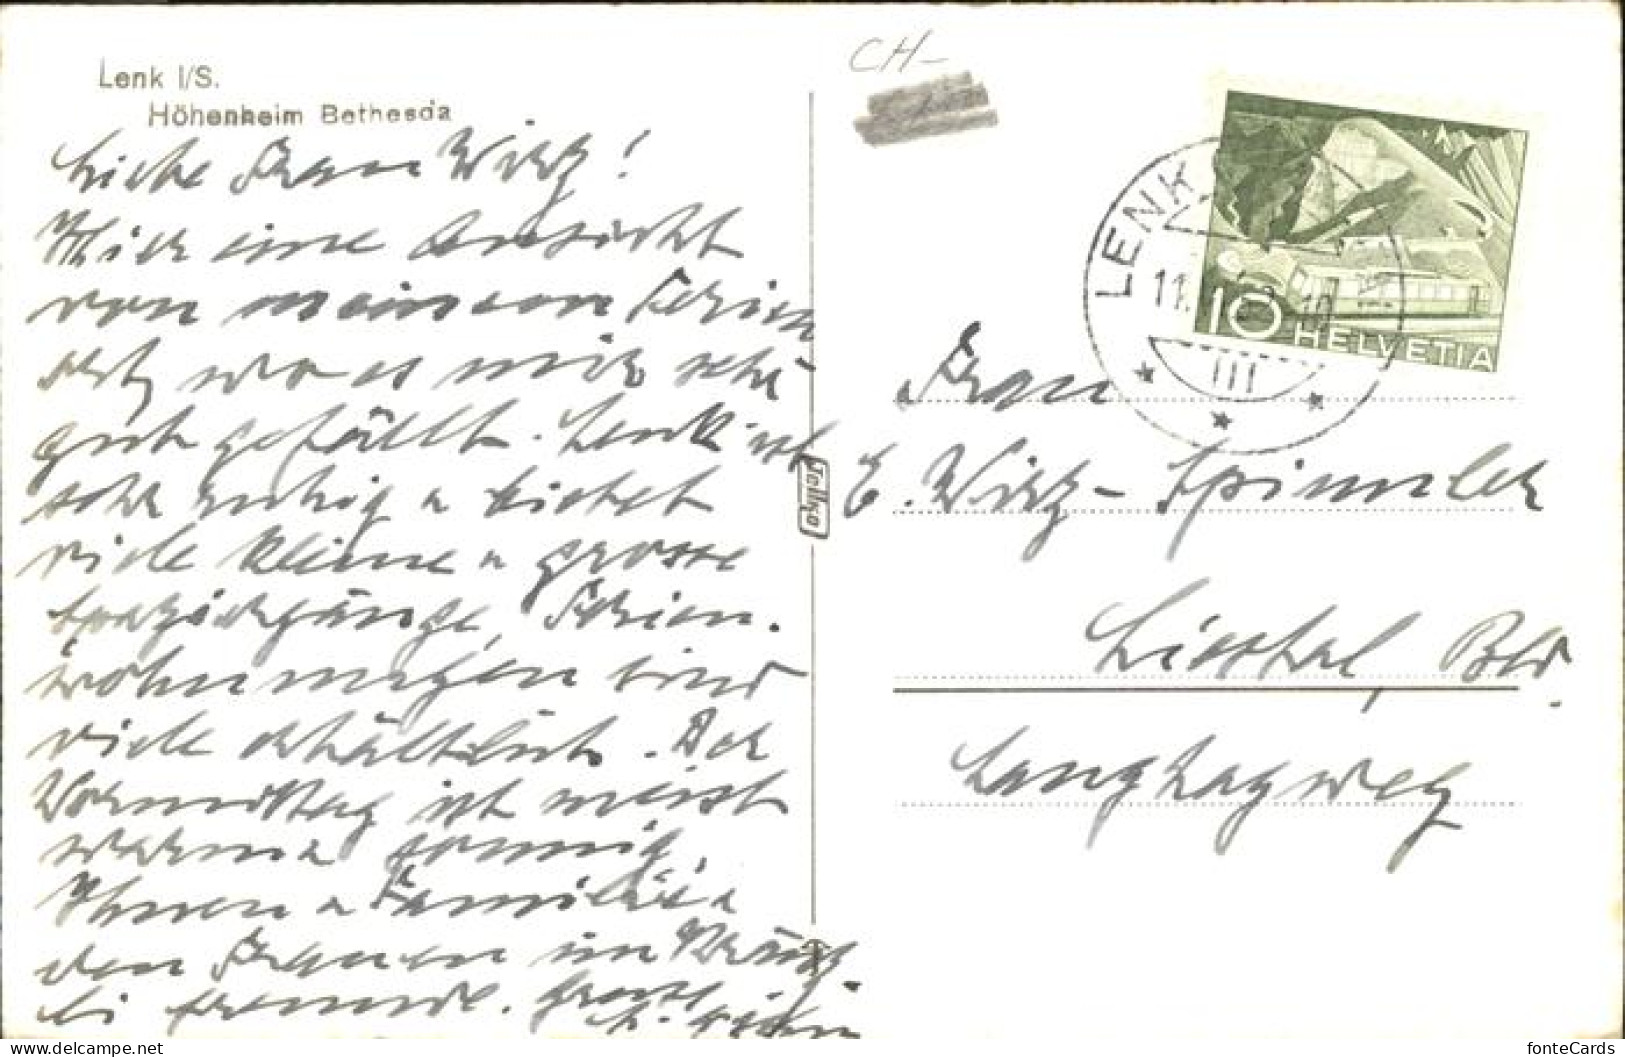 CH-
Lenk I/S.
Höhenheim Bethesda
Liebe Frau Wirz!
Hier eine Ansicht
von meinem Ferien
ort, wo es mir sehr
gut gefällt. Lenk ist
sehr ruhig u bietet
viele kleine u grosse
Spaziergänge, Ferien-
wohnungen sind
viele erhältlich. Der
Vormittag ist meist
warm u sonnig.
Ihnen u Familie u
den Frauen im Kränz-
li freundl. Grüsse
LENK
11. 10
III
10 HELVETIA
Jellko
Frau
E. Wirz-Spinnler
Liestal, Bld.
Langhagweg
fonteCards